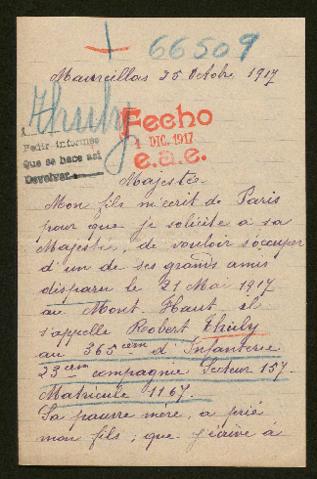 66509
Maureillas 25 Octobre 1917
Thuly
Fecho
4 DIC. 1917
e.a.e.
Pedir informes
Que se hace asi
Devolver
Majestée
Mon fils m'ecrit de Paris
pour que je solicite à sa
Majestée, de vouloir s'occuper
d'un de ses grands amis
disparu le 21 Mai 1917
au Mont Haut, il
s'appelle Robert Thuly
au 365 cem d'Infanterie
23 cem compagnie Secteur 157.
Matricule 1167.
Sa pauvre mère, a prié
mon fils; que j'écrive à